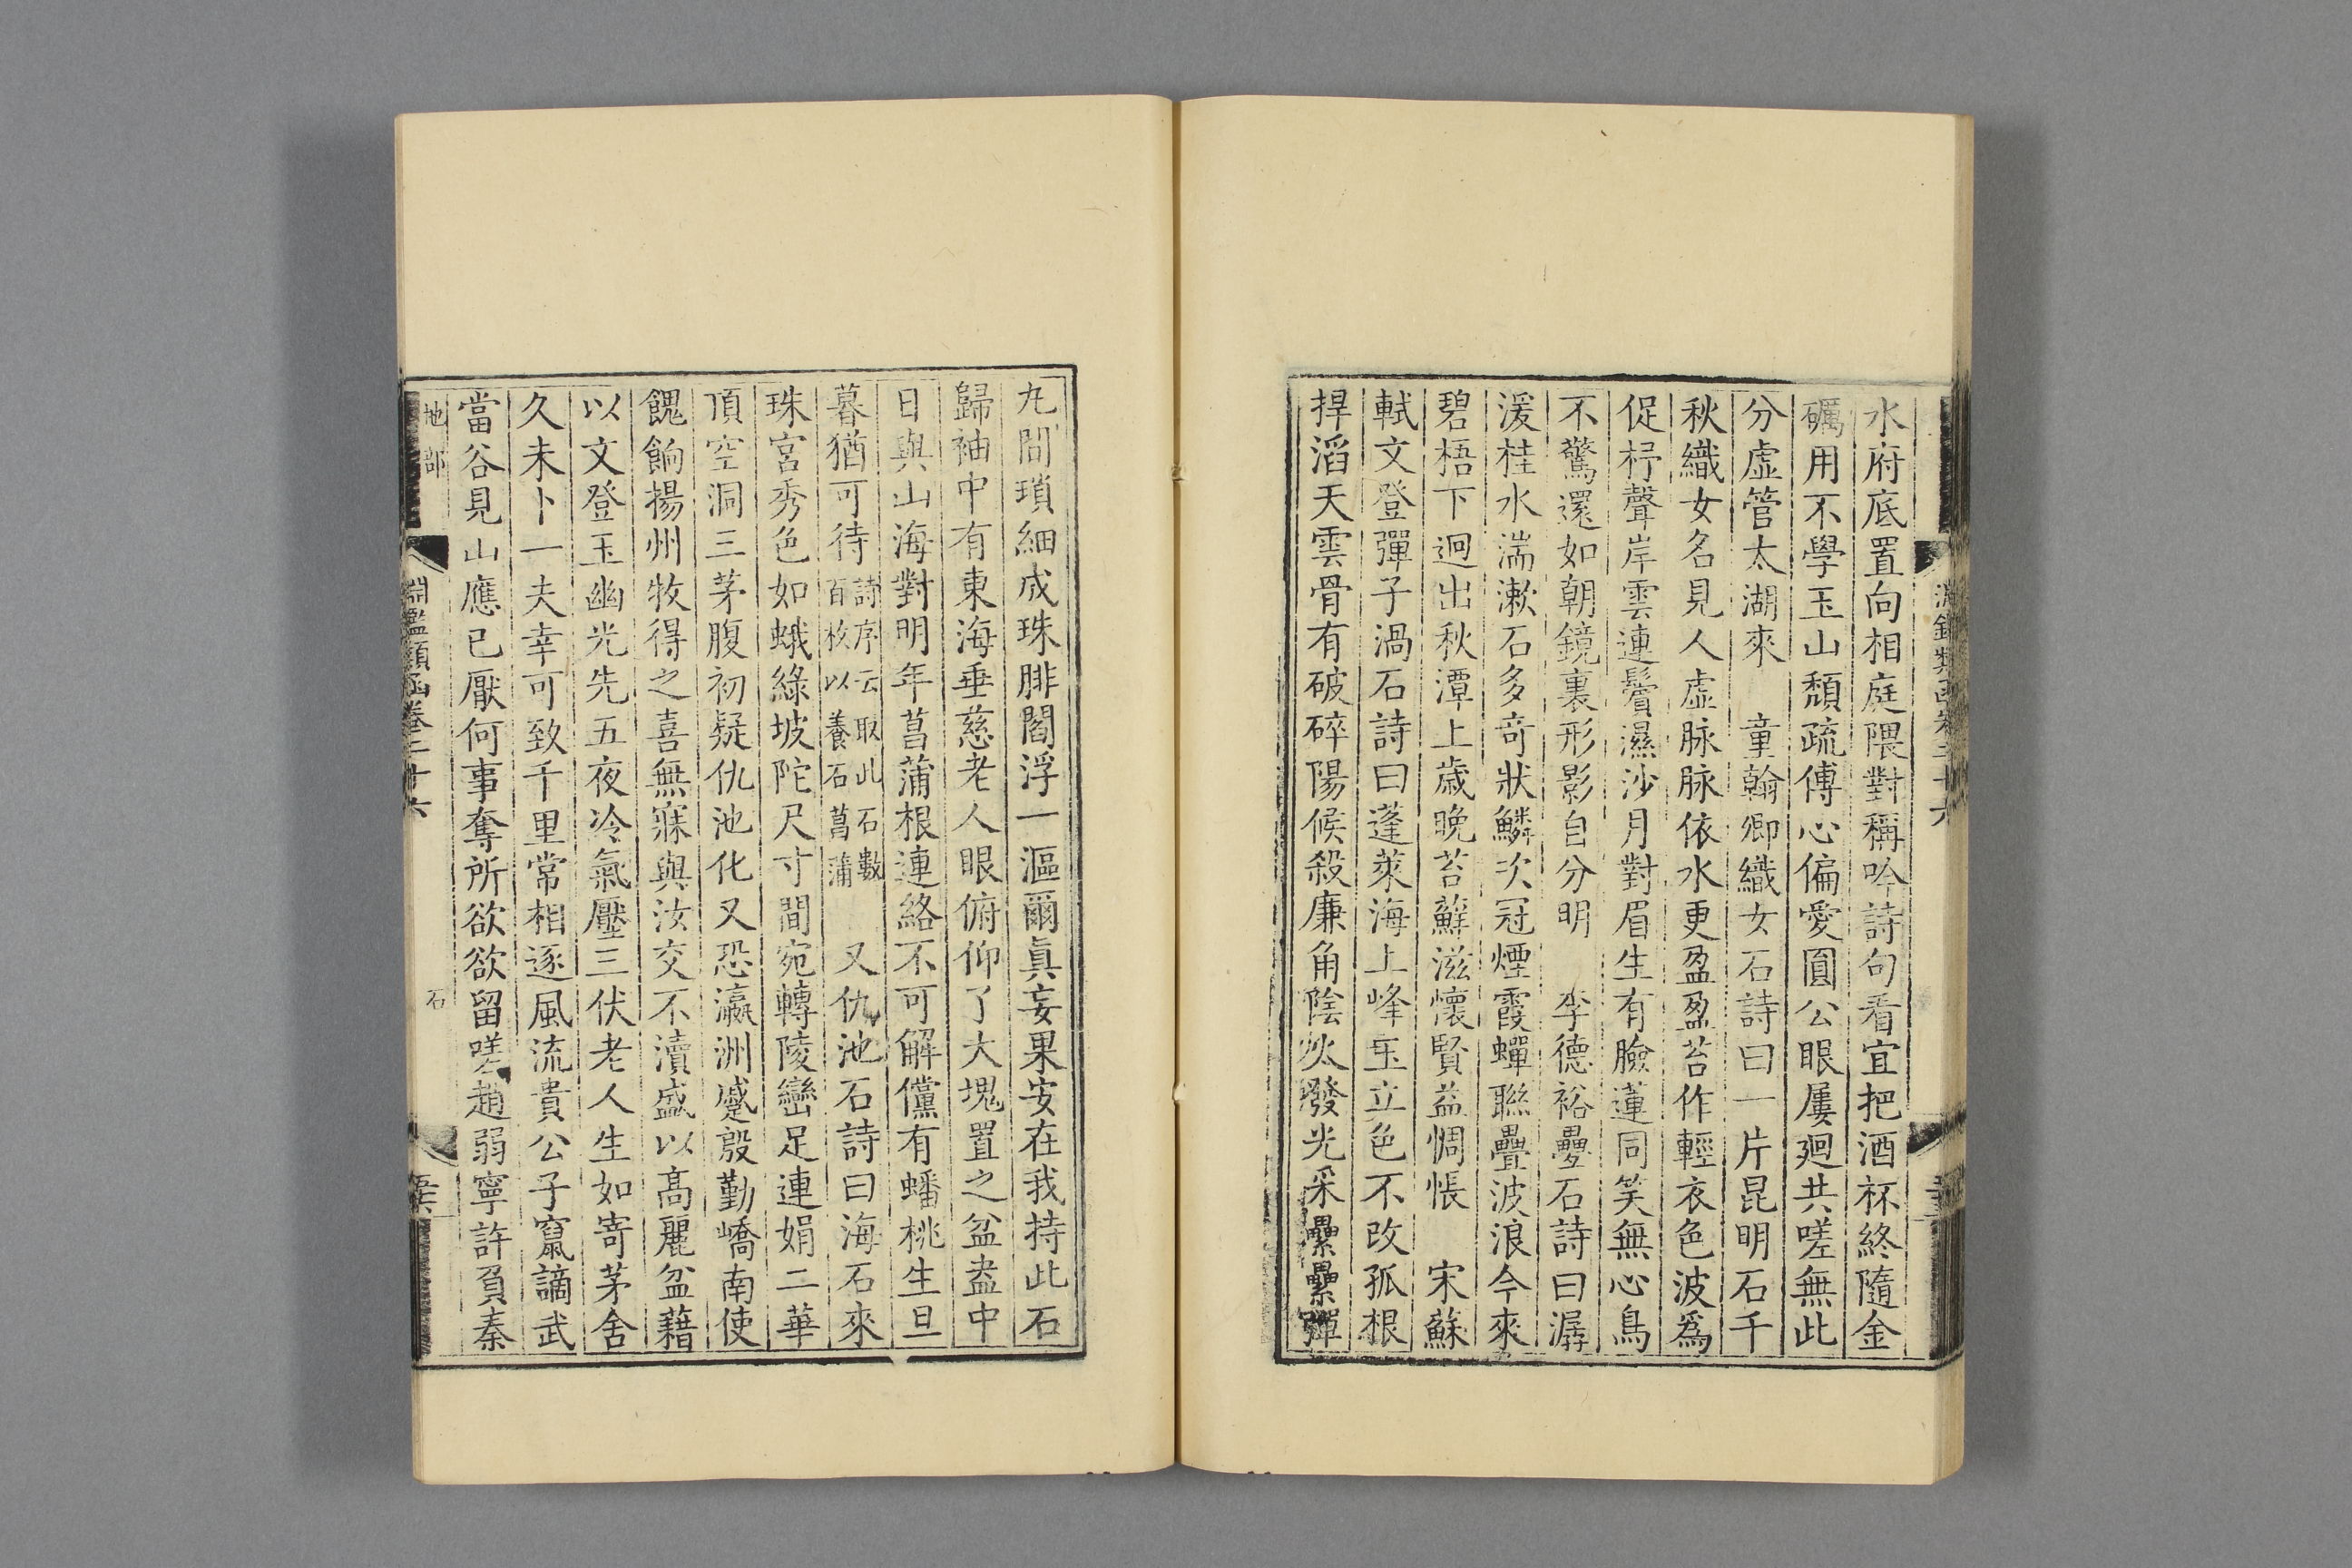 水府底置向相庭隈對稱吟詩句看宜把酒杯終隨金
礪用不學玉山頽疏傅心偏愛圓公眼屢廻共嗟無此
分虛管太湖來 童翰卿織女石詩曰一片昆明石千
秋織女名見人虛脉脉依水更盈盈苔作輕衣色波爲
促杼聲岸雲連鬢濕沙月對眉生有臉蓮同笑無心鳥
不驚還如朝鏡裏形影自分明 李德裕壘石詩曰潺
湲桂水湍漱石多奇狀鱗次冠煙霞蟬聯疊波浪今來
碧梧下迥出秋潭上歲晚苔蘚滋懷賢益惆悵 宋蘇
軾文登彈子渦石詩曰蓬萊海上峰玉立色不改孤根
捍滔天雲骨有破碎陽侯殺廉角陰火發光采纍纍彈
丸間瑣細成珠腓閻浮一漚爾真妄果安在我持此石
歸袖中有東海垂慈老人眼俯仰了大塊置之盆盎中
日與山海對明年菖蒲根連絡不可解儻有蟠桃生旦
暮猶可待 詩序云取此石數百枚以養石菖蒲 又仇池石詩曰海石來
珠宮秀色如蛾綠坡陀尺寸間宛轉陵巒足連娟二華
頂空洞三茅腹初疑仇池化又恐瀛洲蹙殷勤嶠南使
餽餉揚州牧得之喜無寐與汝交不瀆盛以高麗盆藉
以文登玉幽光先五夜冷氣壓三伏老人生如寄茅舍
久未卜一夫幸可致千里常相逐風流貴公子竄謫武
當谷見山應已厭何事奪所欲欲留嗟趙弱寧許負秦
地部
淵鑑類函卷二十六
石